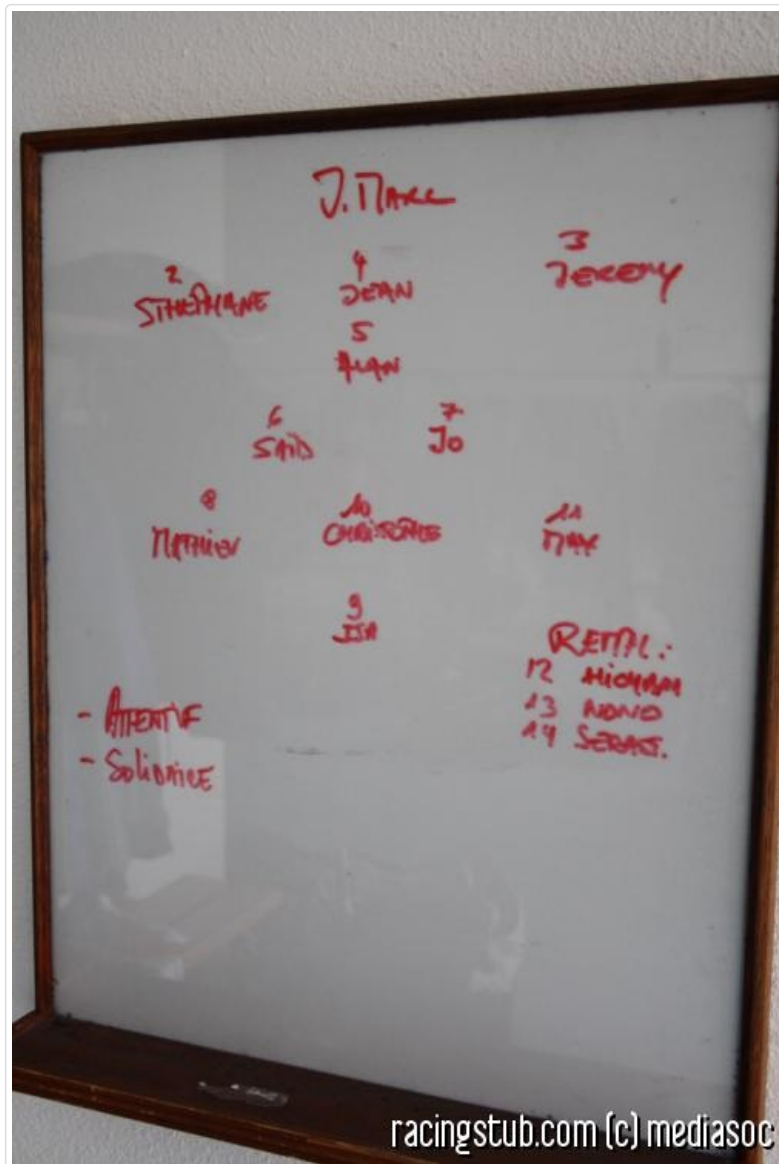 J. MARC
2 4 3
STHEPHANE JEAN JEREMY
5
ALAN
6 7
SAÏD JO
8 10 11
MATHIEU CHRISTOPHE MAX
9
ISA
REMPL:
12 HICHAM
13 NONO
14 SEBAST.
- ATTENTIF
- SOLIDAIRE
racingstub.com (c) mediasoc